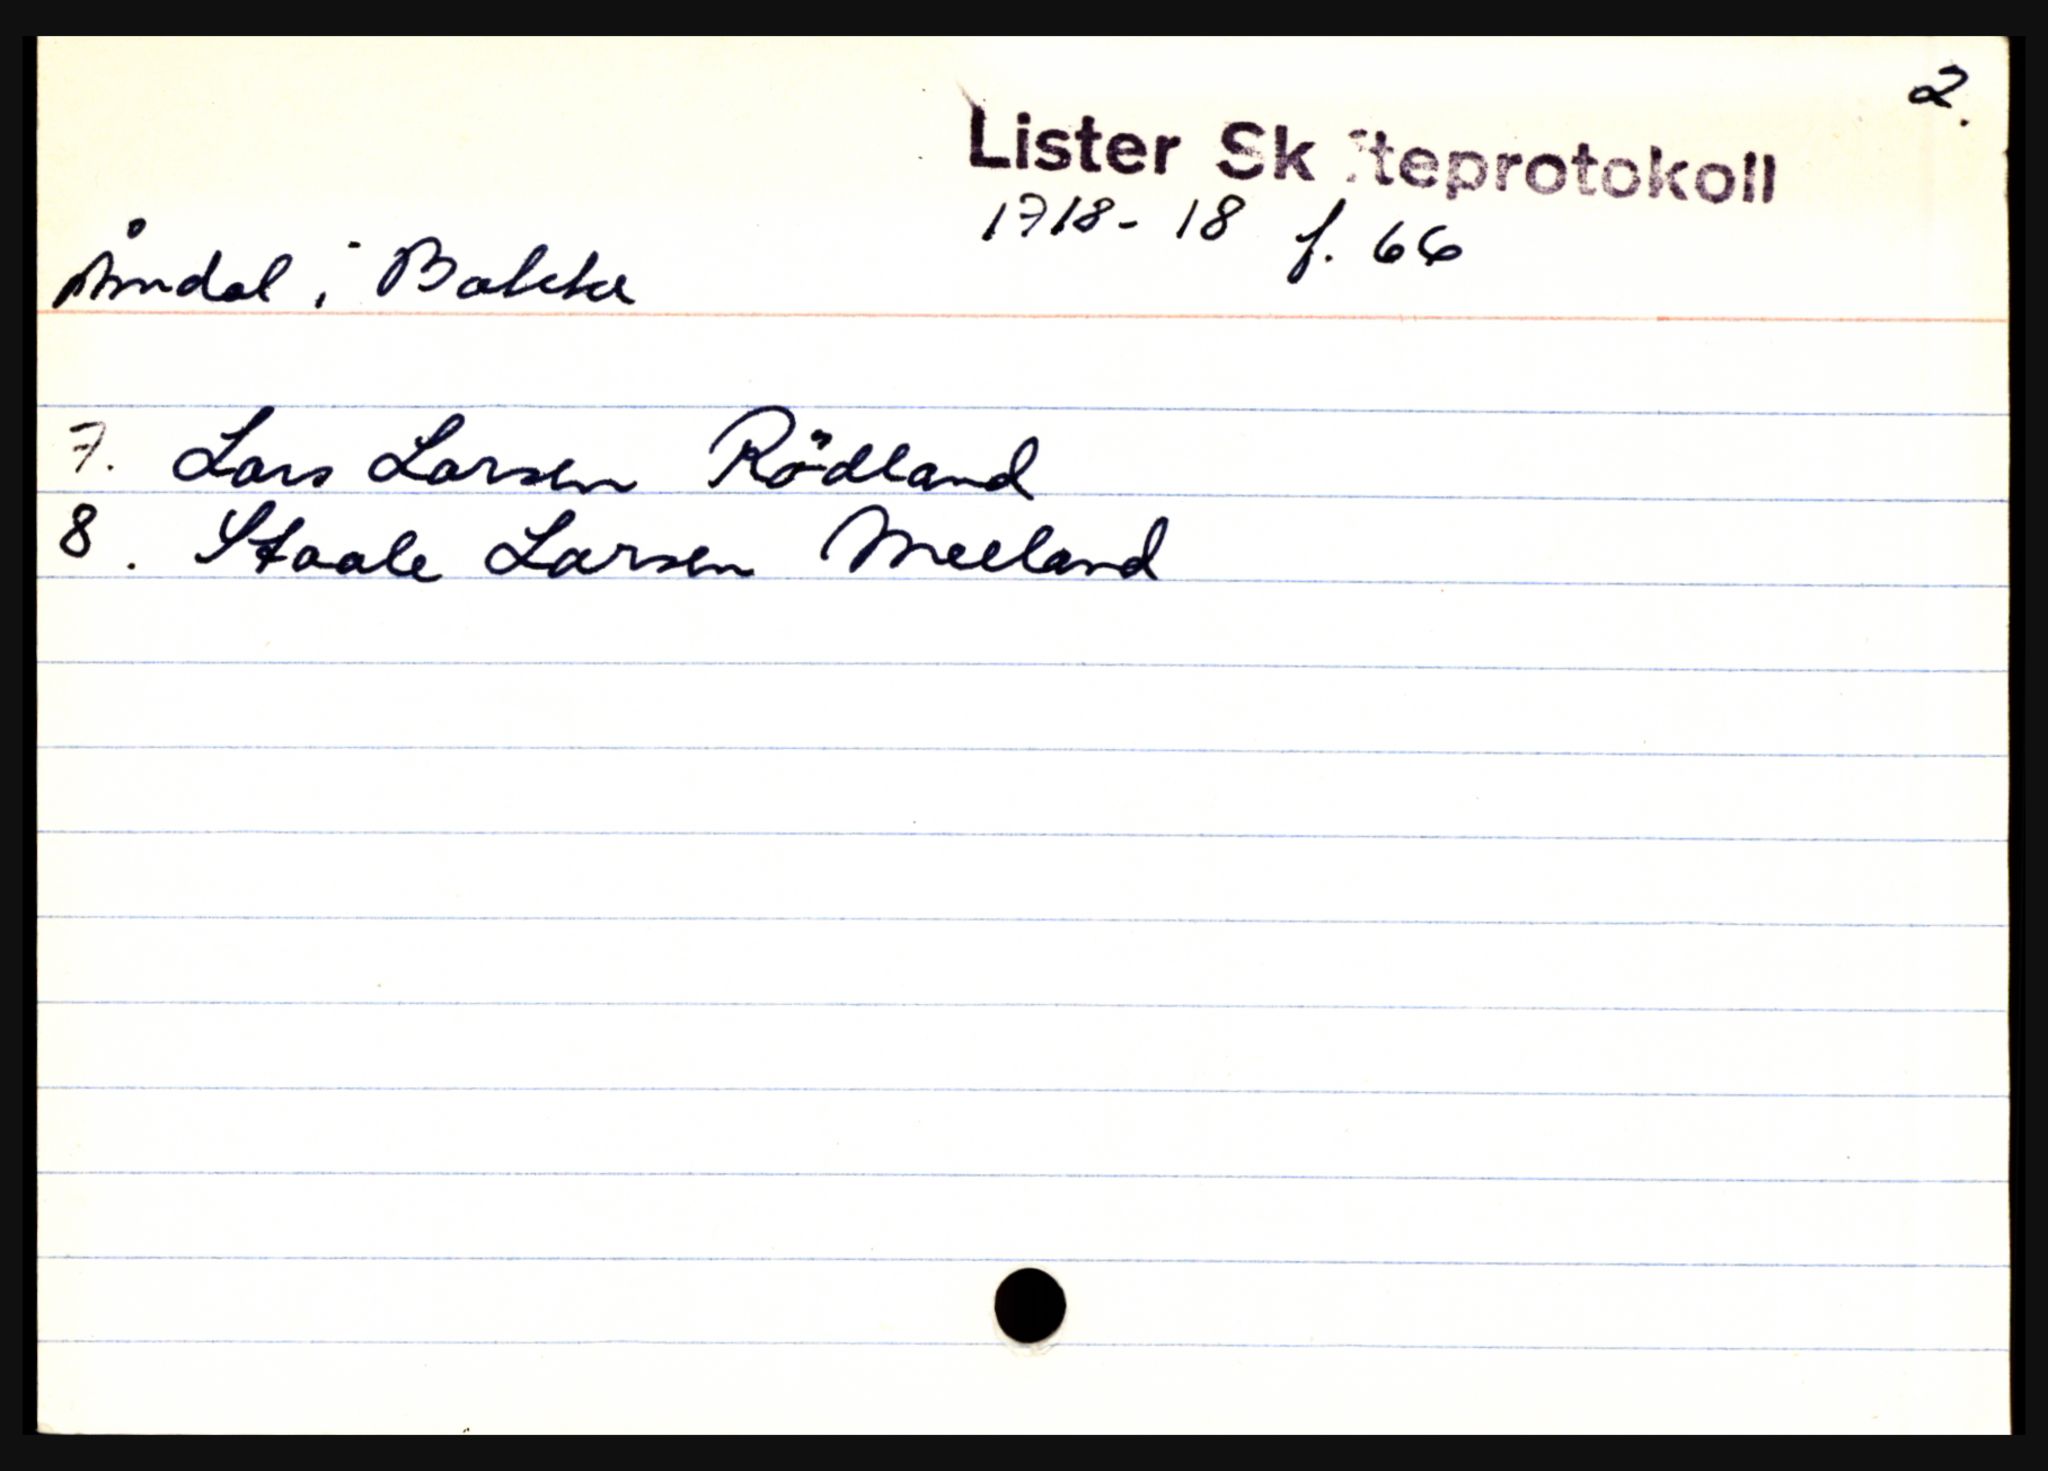 2.
Lister Skifteprotokoll
1718-18 f. 66
Åmdal i Bakke
7. Lars Larsen Rödland
8. Staale Larsen Meeland